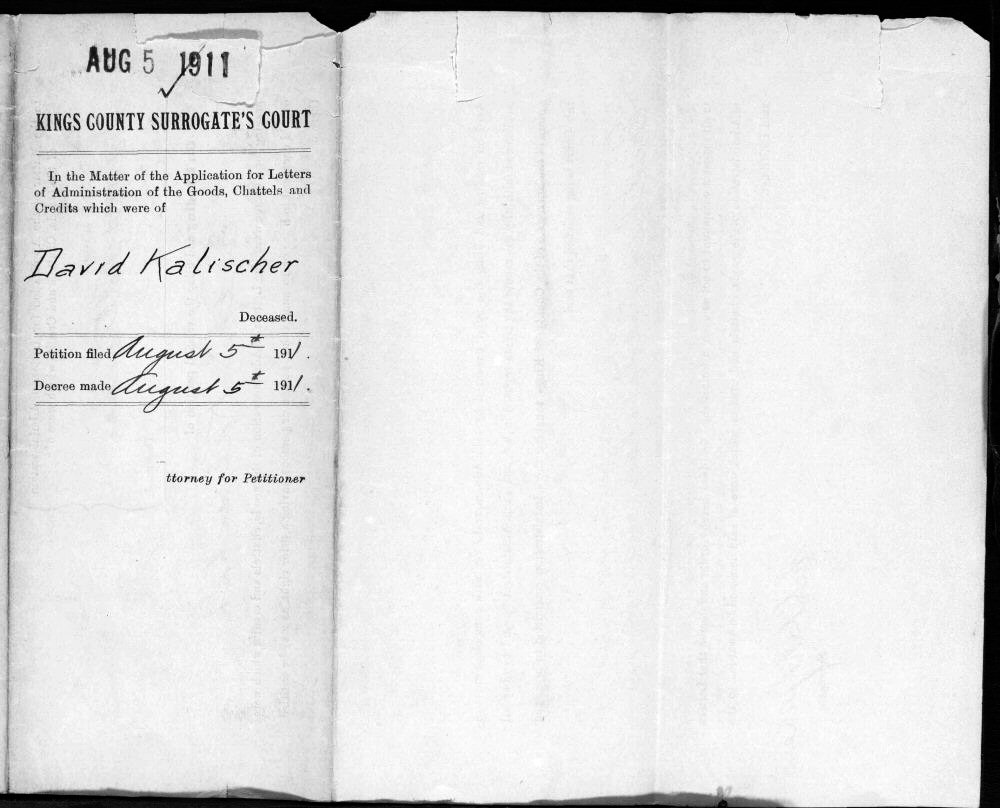 AUG 5 1911
KINGS COUNTY SURROGATE'S COURT
In the Matter of the Application for Letters
of Administration of the Goods, Chattels and
Credits which were of
David Kalischer
Deceased.
Petition filed August 5th 1911.
Decree made August 5th 1911.
ttorney for Petitioner